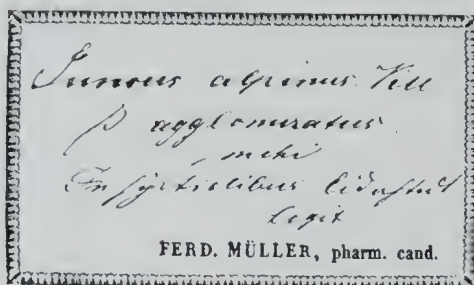 Juncus alpinus Vill
β agglomeratus
mihi
In syrticolibus
legit
FERD. MÜLLER, pharm. cand.